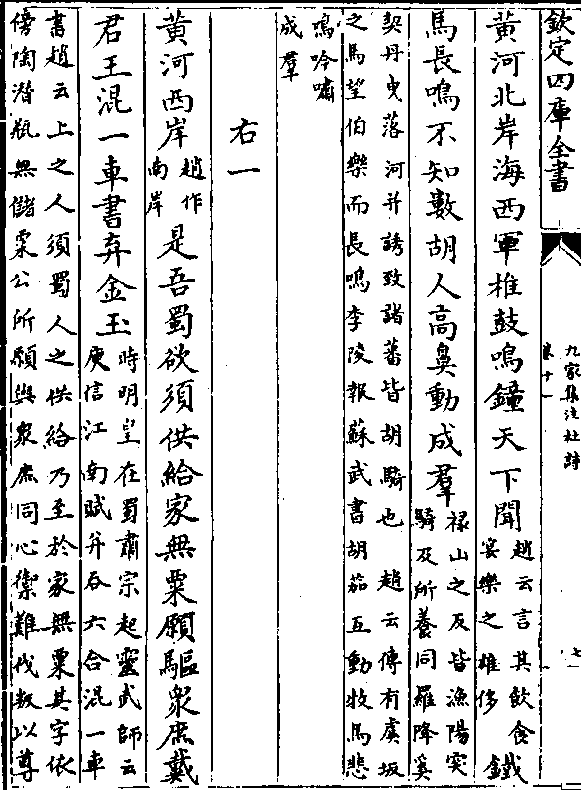 欽定四庫全書
九家集注杜詩
卷十一
七
黃河北岸海西軍椎鼓鳴鐘天下聞趙云言其飲食宴樂之雄侈鐵
馬長鳴不知數胡人高鼻動成羣祿山之反皆漁陽突騎及所養同羅降奚
契丹曳落河并誘致諸蕃皆胡騎也 趙云傳有虞坂
之馬望伯樂而長鳴李陵報蘇武書胡笳互動牧馬悲
鳴吟嘯
成羣
右一
黃河西岸趙作南岸是吾蜀欲須供給家無粟願驅衆庶戴
君王混一車書弃金玉時明皇在蜀肅宗起靈武師云庾信江南賦并吞六合混一車
書趙云上之人須蜀人之供給乃至於家無粟其字依
傍陶潛瓶無儲粟公所願與衆庶同心禦難伐叛以尊